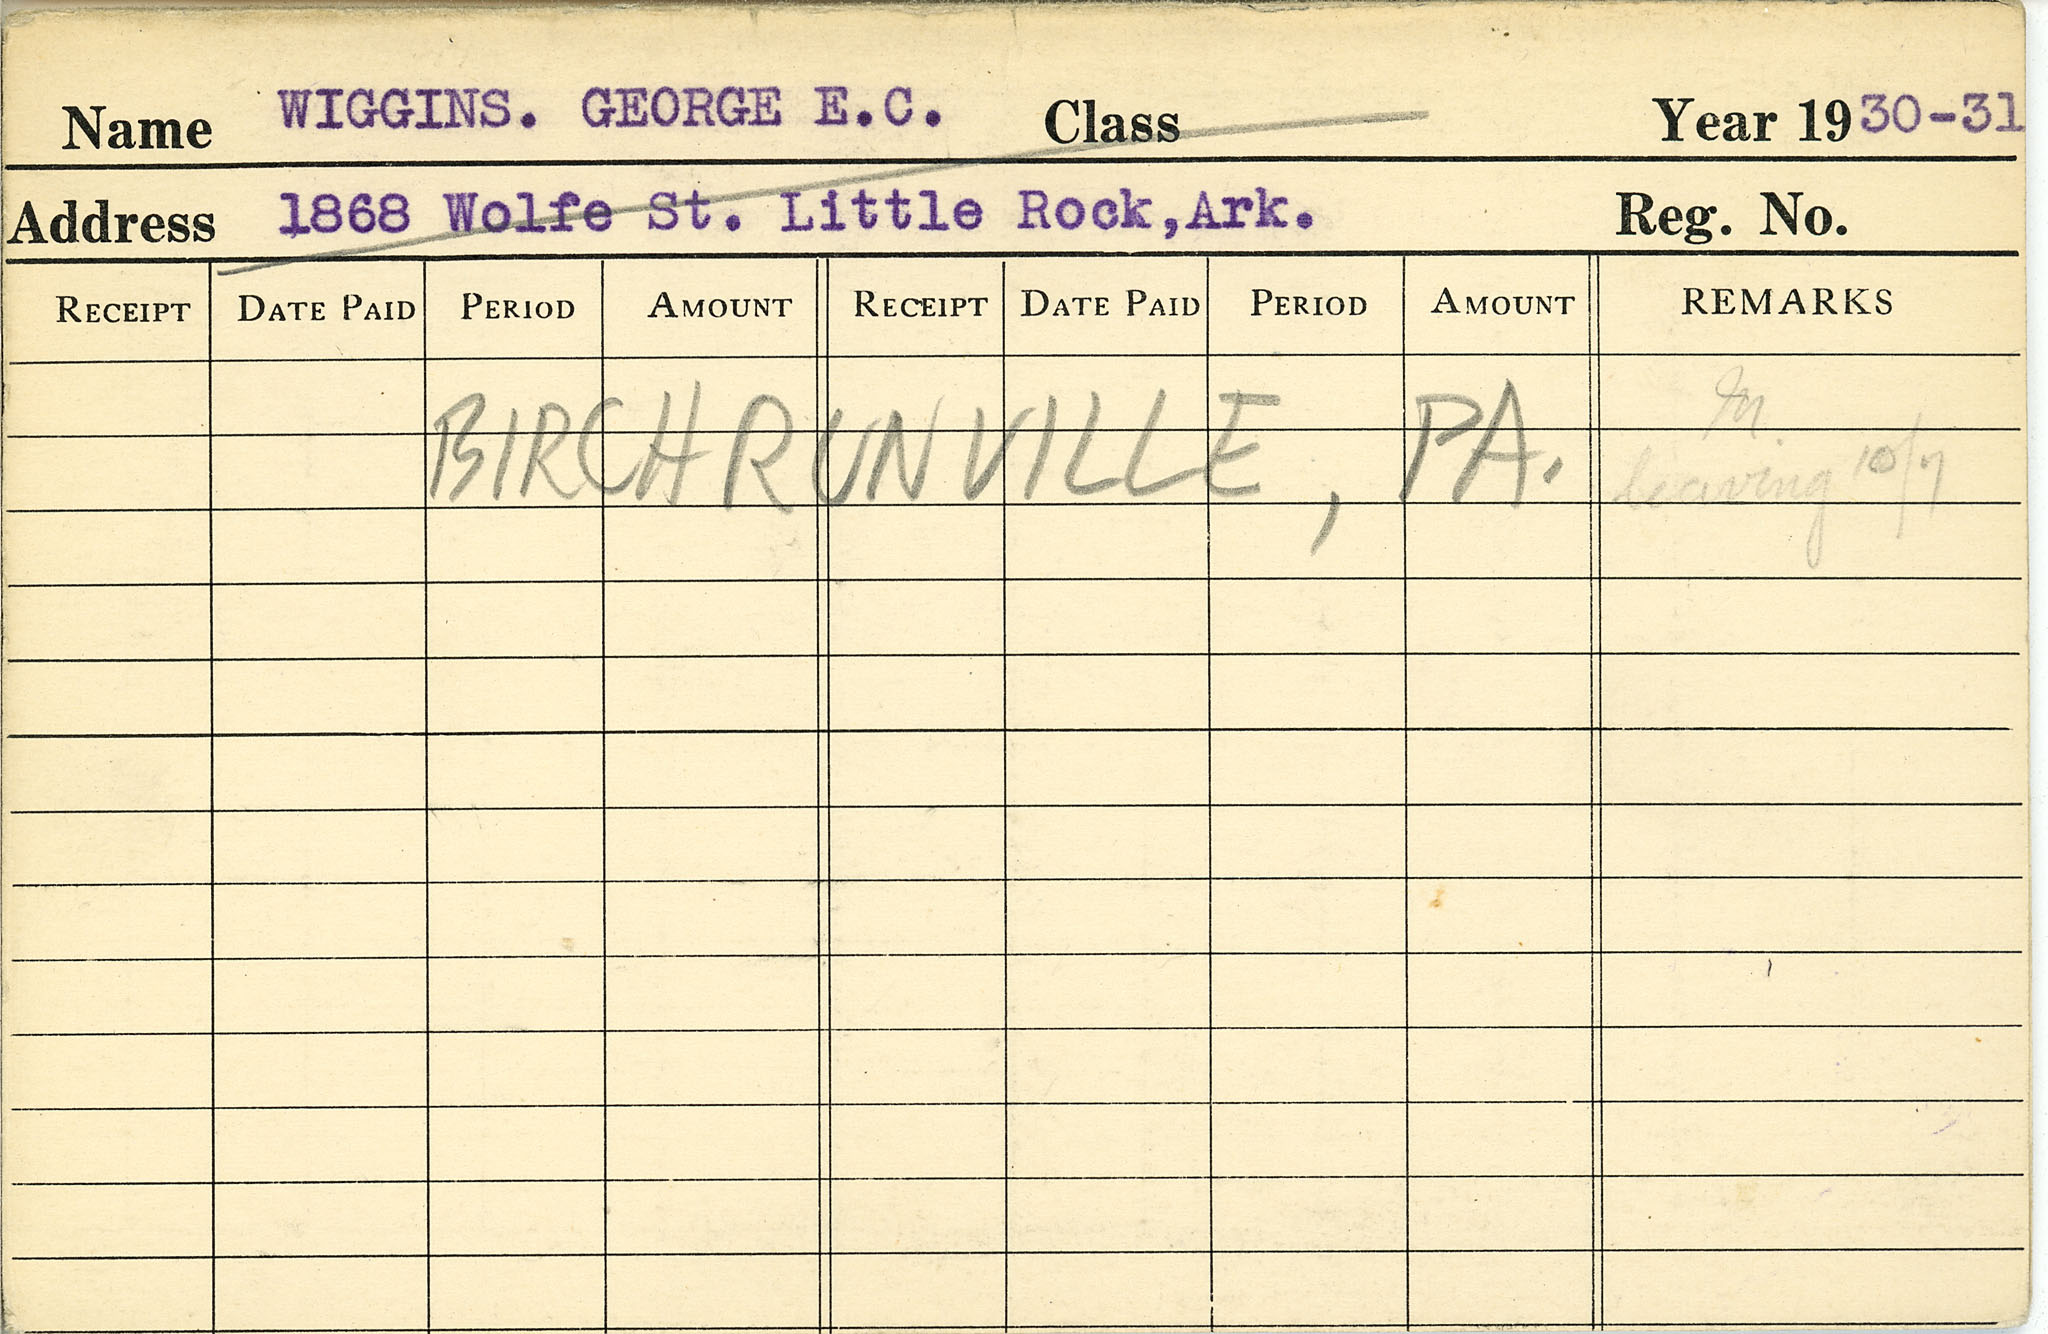 Name WIGGINS. GEORGE E.C. Class Year 1930-31
Address 1868 Wolfe St. Little Rock,Ark. Reg. No.
RECEIPT DATE PAID PERIOD AMOUNT RECEIPT DATE PAID PERIOD AMOUNT REMARKS
BIRCHRUNVILLE, PA.
leaving 10/7